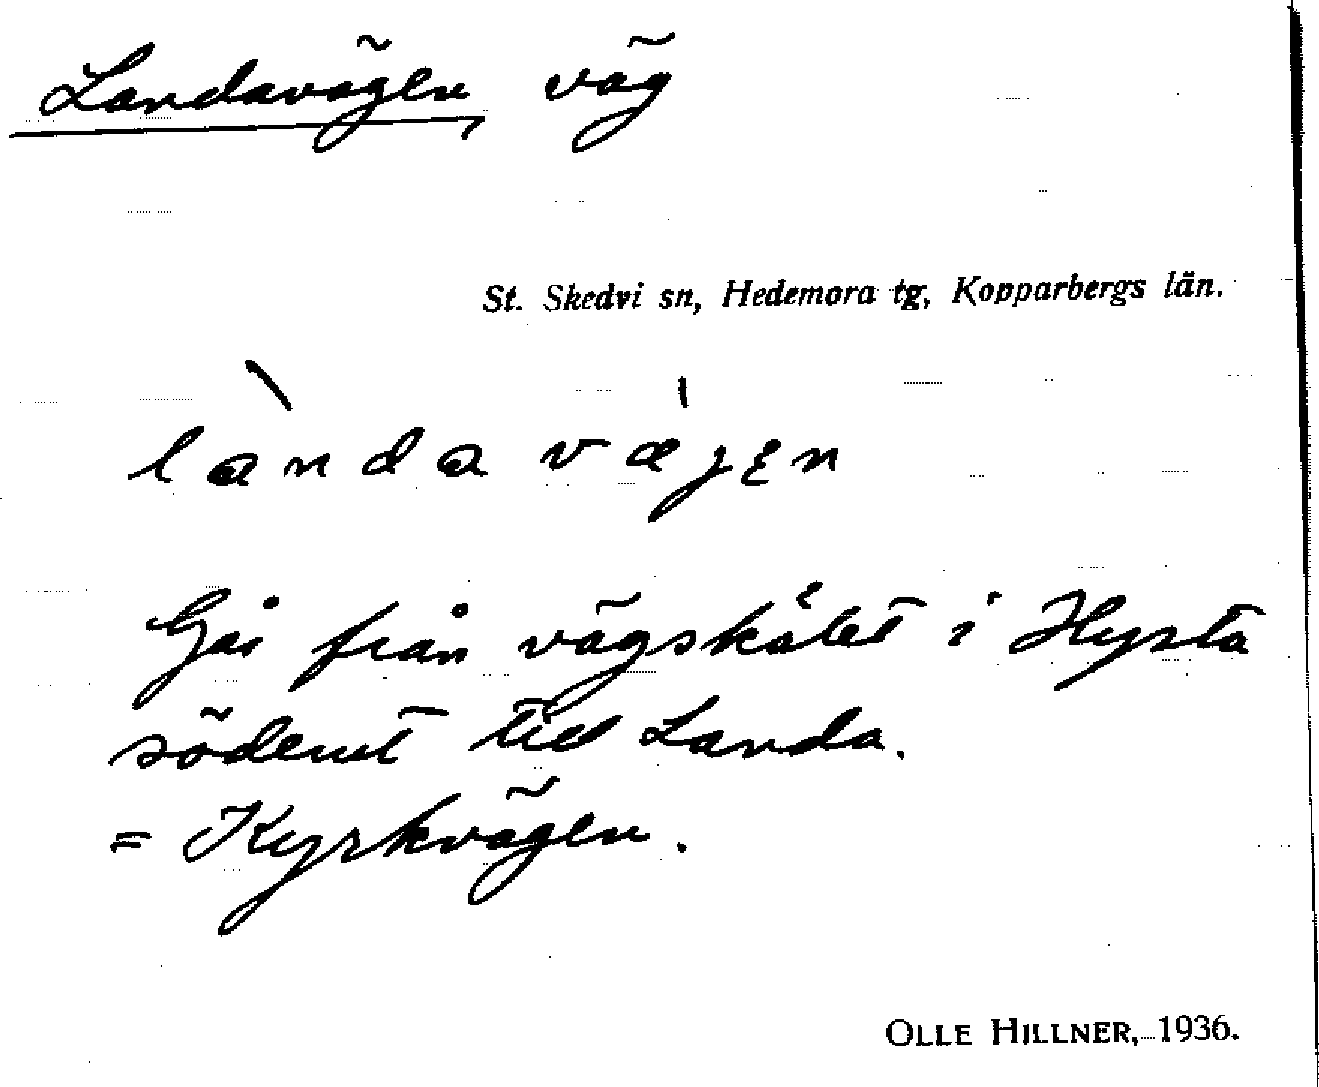 Landavägen, väg
St. Skedvi sn, Hedemora tg, Kopparbergs län.
l à n d a v æ ́ j ε n
Går från vägskälet i Hysta
söderut till Landa.
= Kyrkvägen.
OLLE HILLNER, 1936.